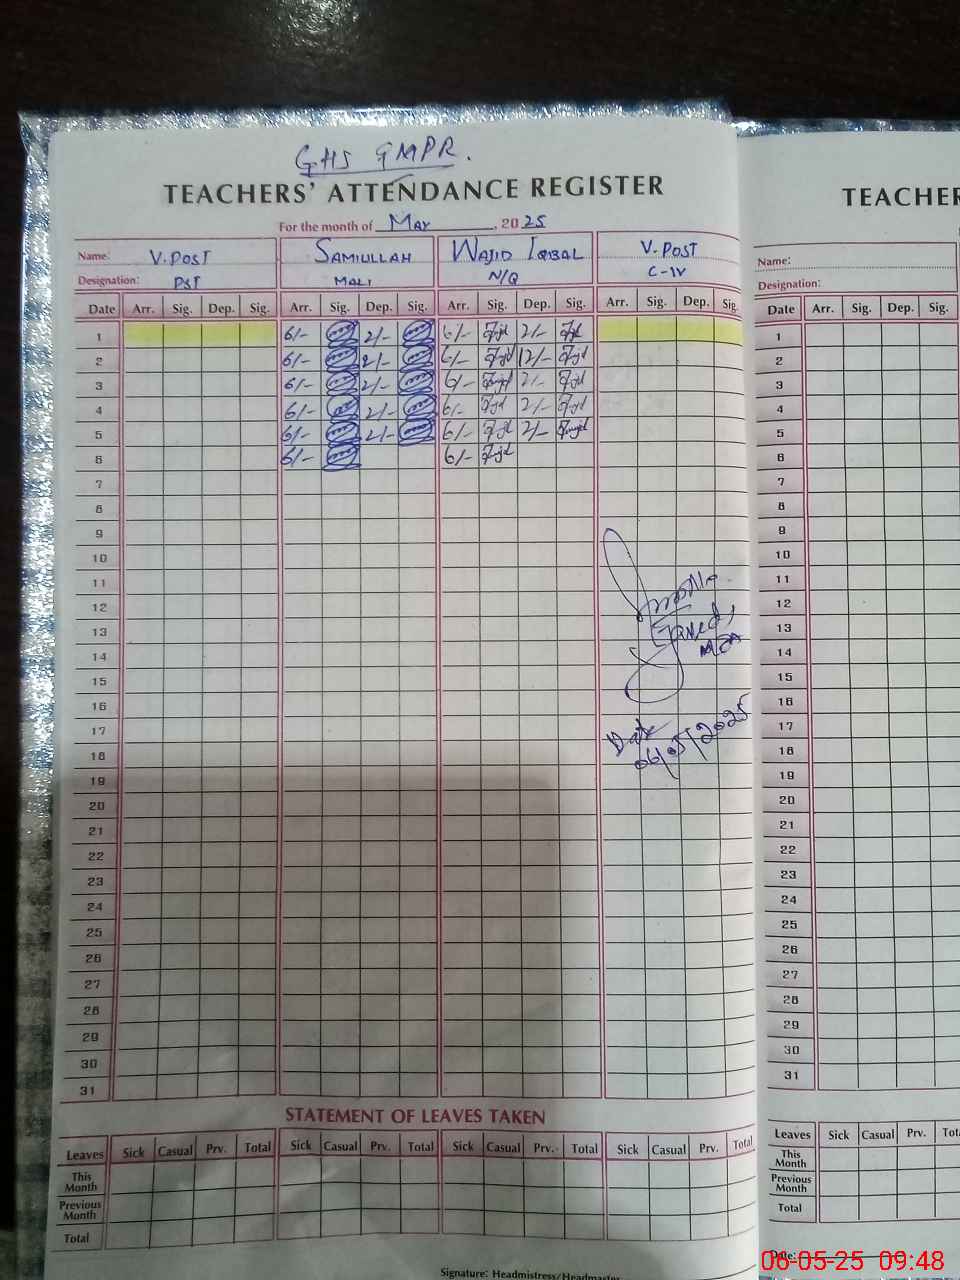 GHS GMPR.
TEACHERS' ATTENDANCE REGISTER
For the month of May, 2025
Name: V.POST SAMIULLAH WAJID IQBAL V.POST
Designation: PST MALI N/Q C-IV
Date Arr. Sig. Dep. Sig. Arr. Sig. Dep. Sig. Arr. Sig. Dep. Sig. Arr. Sig. Dep. Sig.
1 6/- 2/- 6/- 2/-
2 6/- 2/- 6/- 12/-
3 6/- 2/- 6/- 2/-
4 6/- 2/- 6/- 2/-
5 6/- 2/- 6/- 2/-
6 6/- 6/-
7
8
9
10
11
12
13
14
15
16
17
18
19
20
21
22
23
24
25
26
27
28
29
30
31
Date
06/05/2025
STATEMENT OF LEAVES TAKEN
Leaves Sick Casual Prv. Total Sick Casual Prv. Total Sick Casual Prv. Total Sick Casual Prv. Total
This Month
Previous Month
Total
Signature: Headmistress/Headmaster
TEACHER
Name:
Designation:
Date Arr. Sig. Dep. Sig.
1
2
3
4
5
6
7
8
9
10
11
12
13
14
15
16
17
18
19
20
21
22
23
24
25
26
27
28
29
30
31
Leaves Sick Casual Prv. Tot
This Month
Previous Month
Total
Date:
06-05-25 09:48